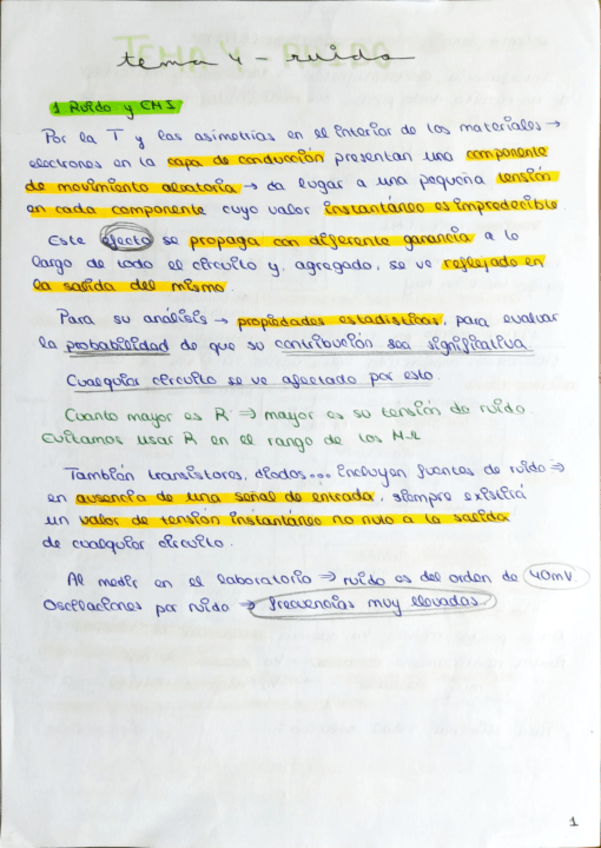 tema 4 - ruido
1 Ruido y EMI
Por la T y las asimetrías en el interior de los materiales →
electrones en la capa de conducción presentan una componente
de movimiento aleatoria → da lugar a una pequeña tensión
en cada componente cuyo valor instantáneo es impredecible.
Este efecto se propaga con diferente ganancia a lo
largo de todo el circuito y, agregado, se ve reflejado en
la salida del mismo.
Para su análisis → propiedades estadísticas, para evaluar
la probabilidad de que su contribución sea significativa.
Cualquier circuito se ve afectado por esto.
Cuanto mayor es R ⇒ mayor es su tensión de ruido.
Evitamos usar R en el rango de los MΩ
También transistores, diodos... incluyen fuentes de ruido ⇒
en ausencia de una señal de entrada, siempre existirá
un valor de tensión instantáneo no nulo a la salida
de cualquier circuito.
Al medir en el laboratorio ⇒ ruido es del orden de 40mV.
Oscilaciones por ruido → frecuencias muy elevadas.
1